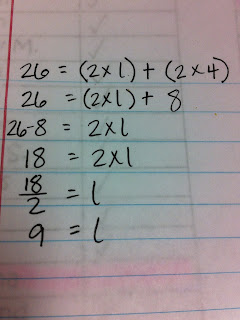 26 = (2×l) + (2×4)
26 = (2×l) + 8
26-8 = 2×l
18 = 2×l
18/2 = l
9 = l